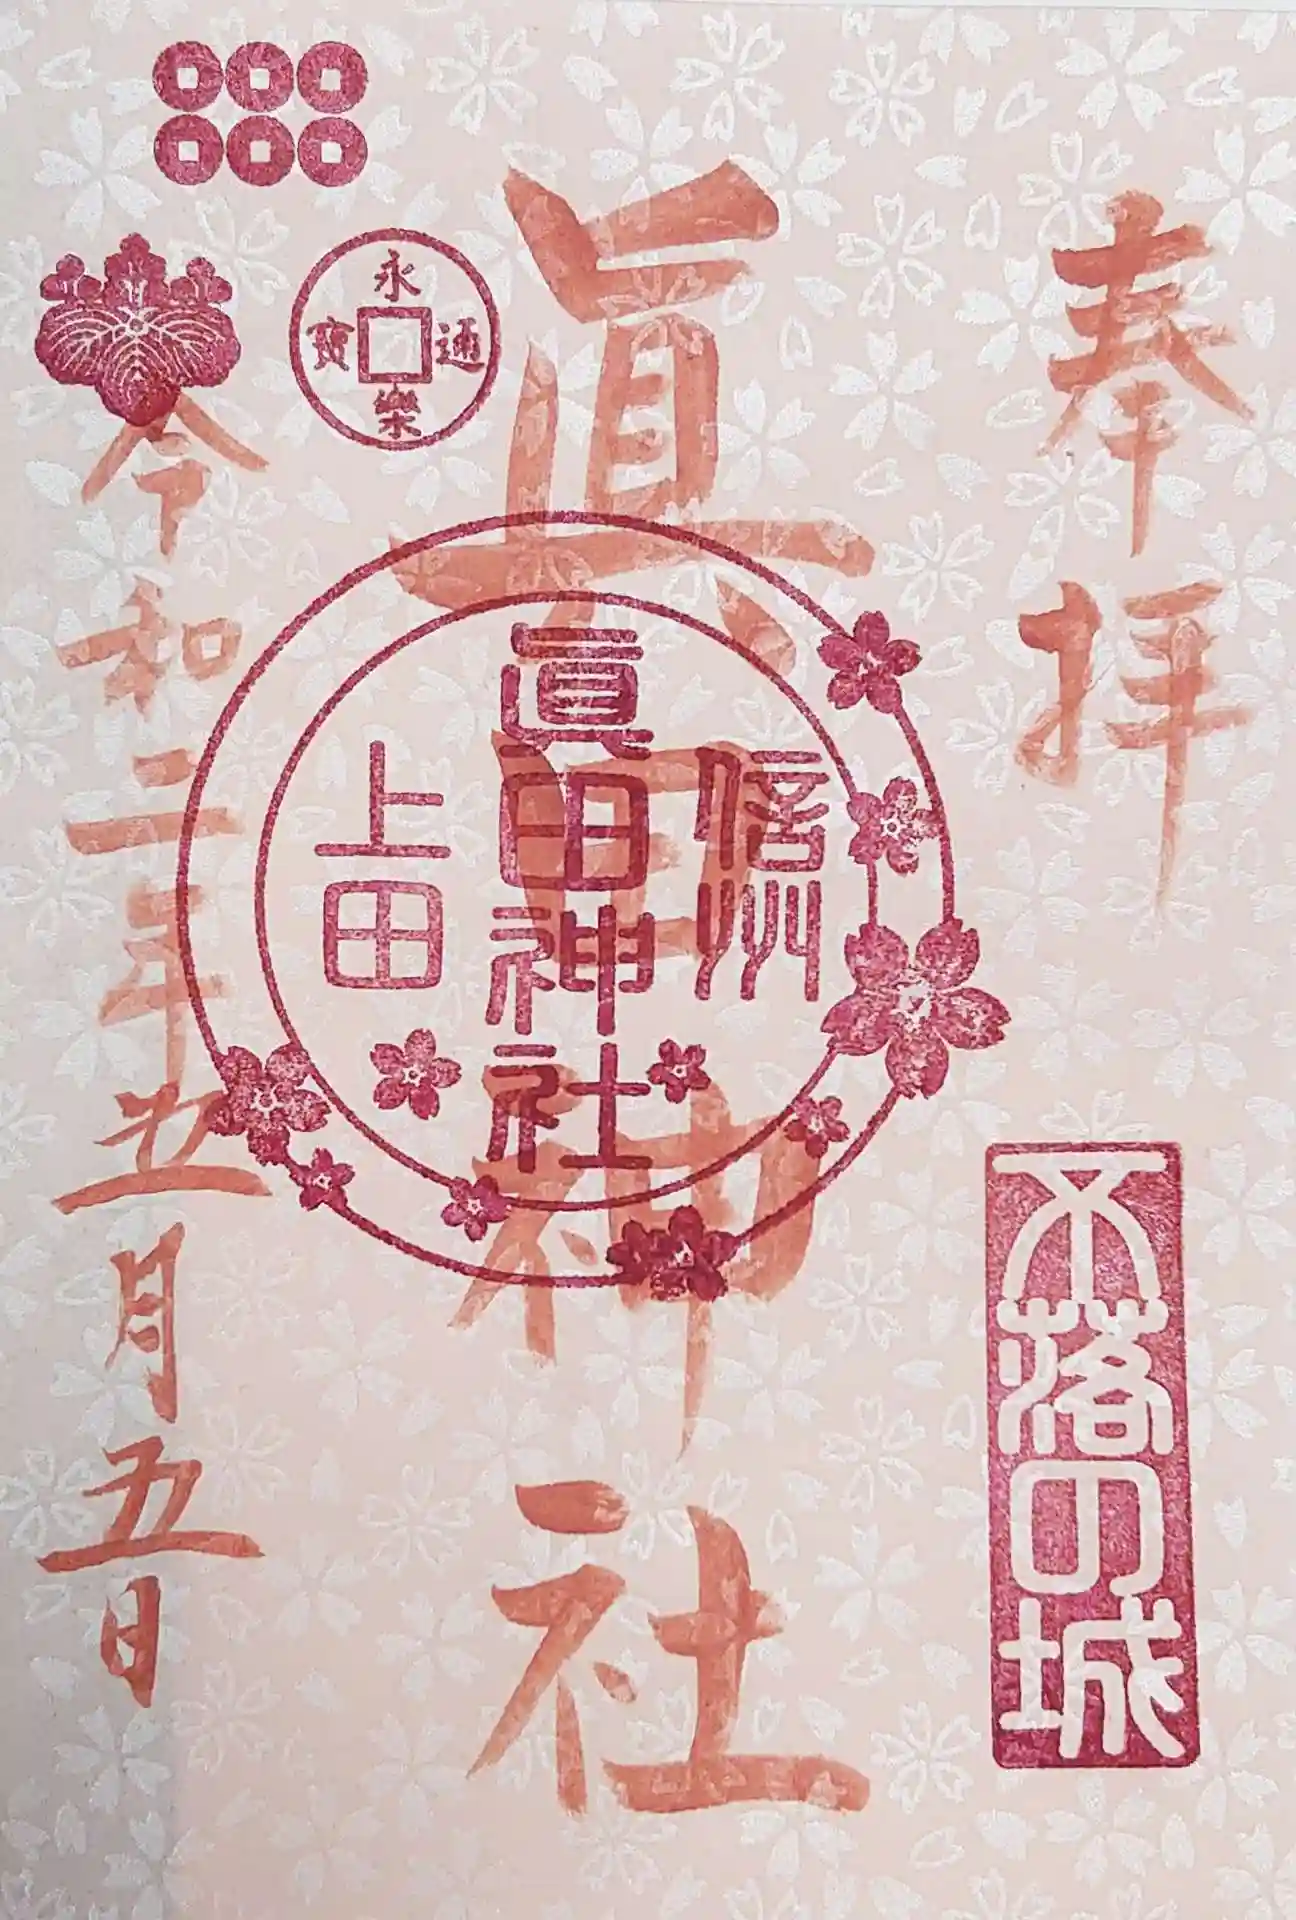 奉拝
不落の城
眞田神社
信州
眞田神社
上田
永樂通寶
令和二年五月五日